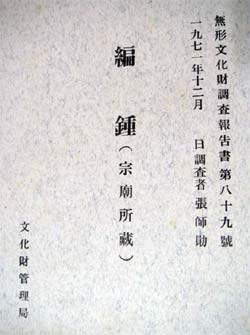 無形文化財調査報告書 第八十九號
一九七一年十二月 日調査者 張師勛
編鍾(宗廟所藏)
文化財管理局